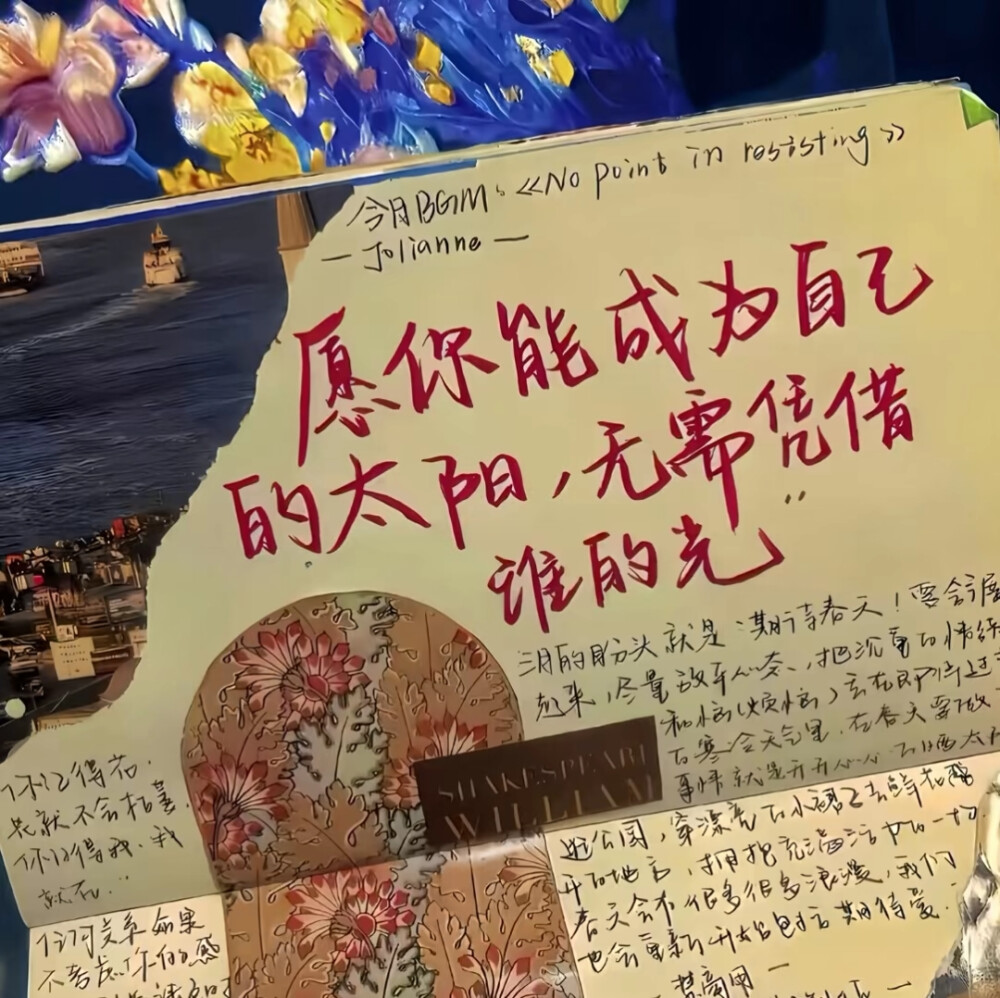 今月BGM:《No point in resisting》
— Jolianne —
愿你能成为自己
的太阳,无需凭借
谁的光
三月的月份头就是期待春天!要会
起来,尽量放平心态,把沉重的情绪
和恼(烦恼)丢在即将过
的寒冷天气里,在春天要做
事情就是开开心心
SHAKESPEARE
WILLIAM
公园,穿漂亮的小裙子去鲜花盛
开的地方,拥抱充满活力的一切
春天会有很多很多浪漫,我们
也会重新开始
期待
你记得花,
花就不会枯萎,
你记得我,我
就在...
任何关系如果
不考虑你的感